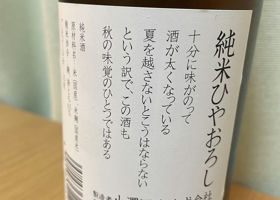 純米ひやおろし
十分に味がのって
酒が太くなっている
夏を越さないとこうはならない
という訳で、この酒も
秋の味覚のひとつではある
純米酒
原材料名:米(国産)・米麹(国産米)
製造者